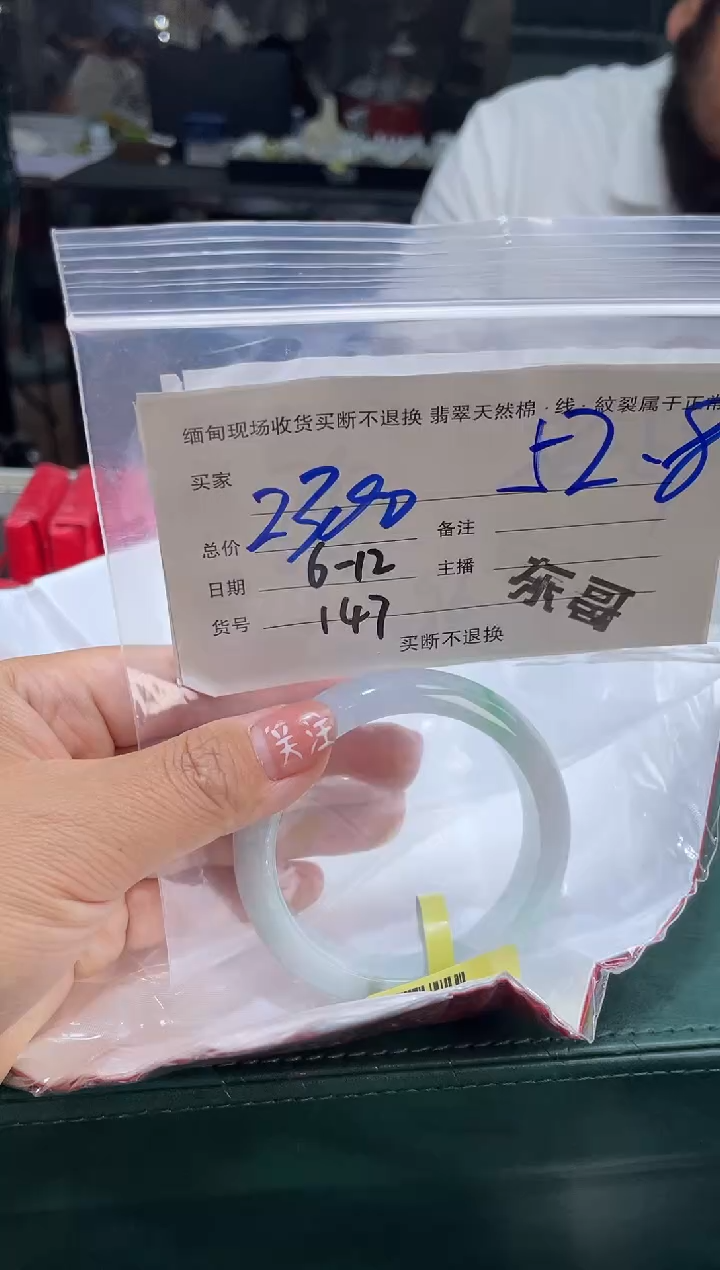 缅甸现场收货买断不退换 翡翠天然棉、线、紋裂属于正常
买家 52-8
总价
备注
日期 6-12
主播 东哥
货号 147
买断不退换
关注